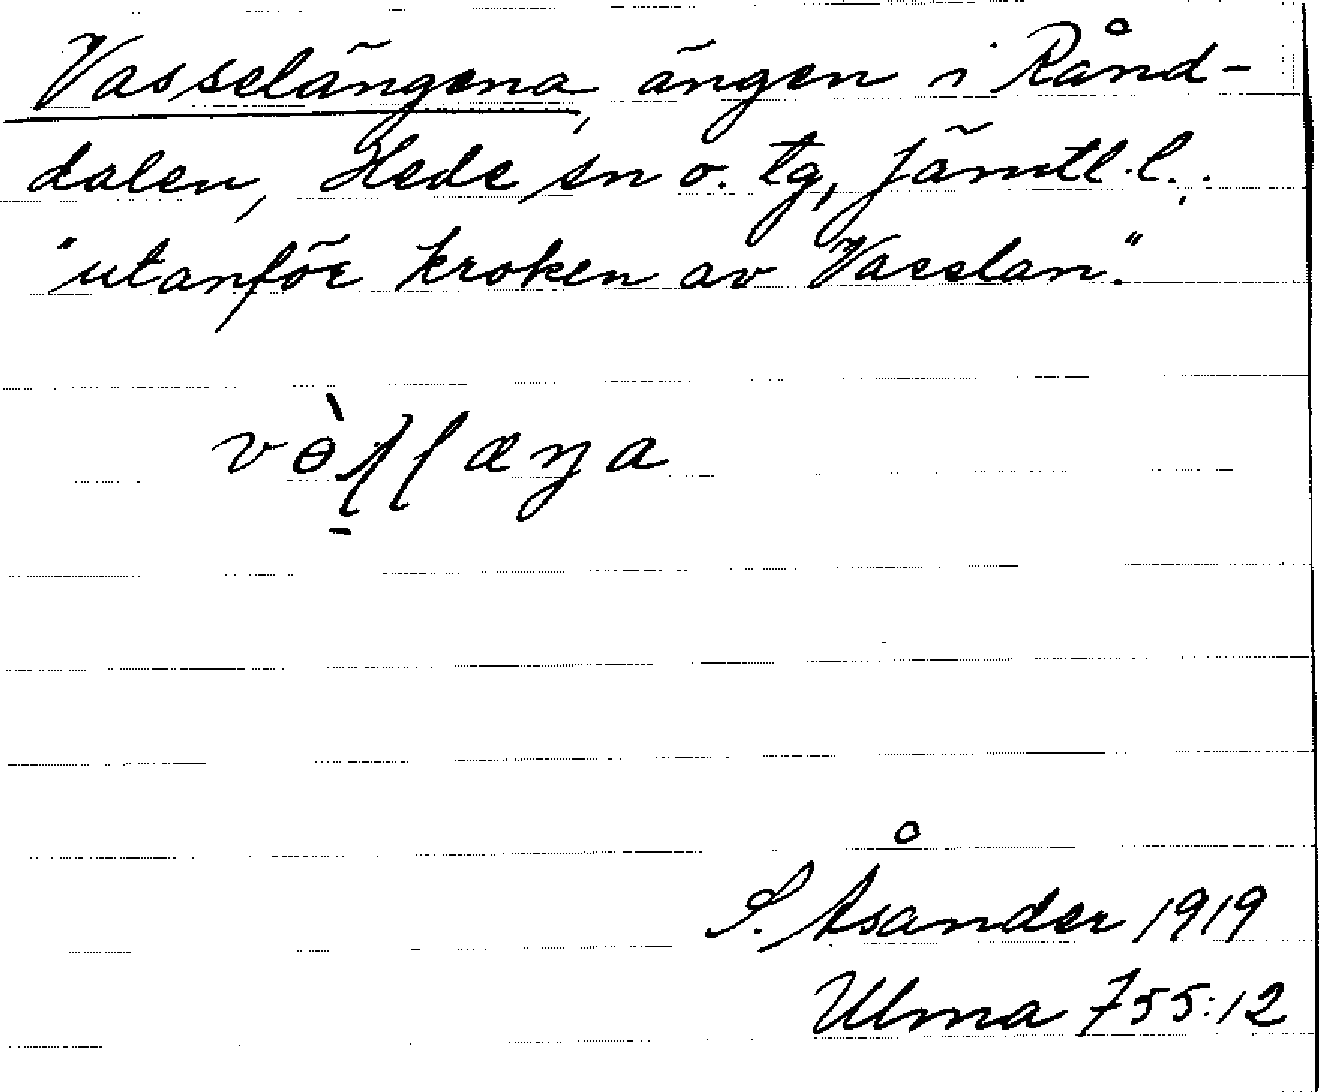 Vasselängena, ängen i Rånd-
dalen, Hede sn o. tg, Jämtl. l..
"utanför kroken av Vasslan."
S. Åsander 1919
Ulma 755:12